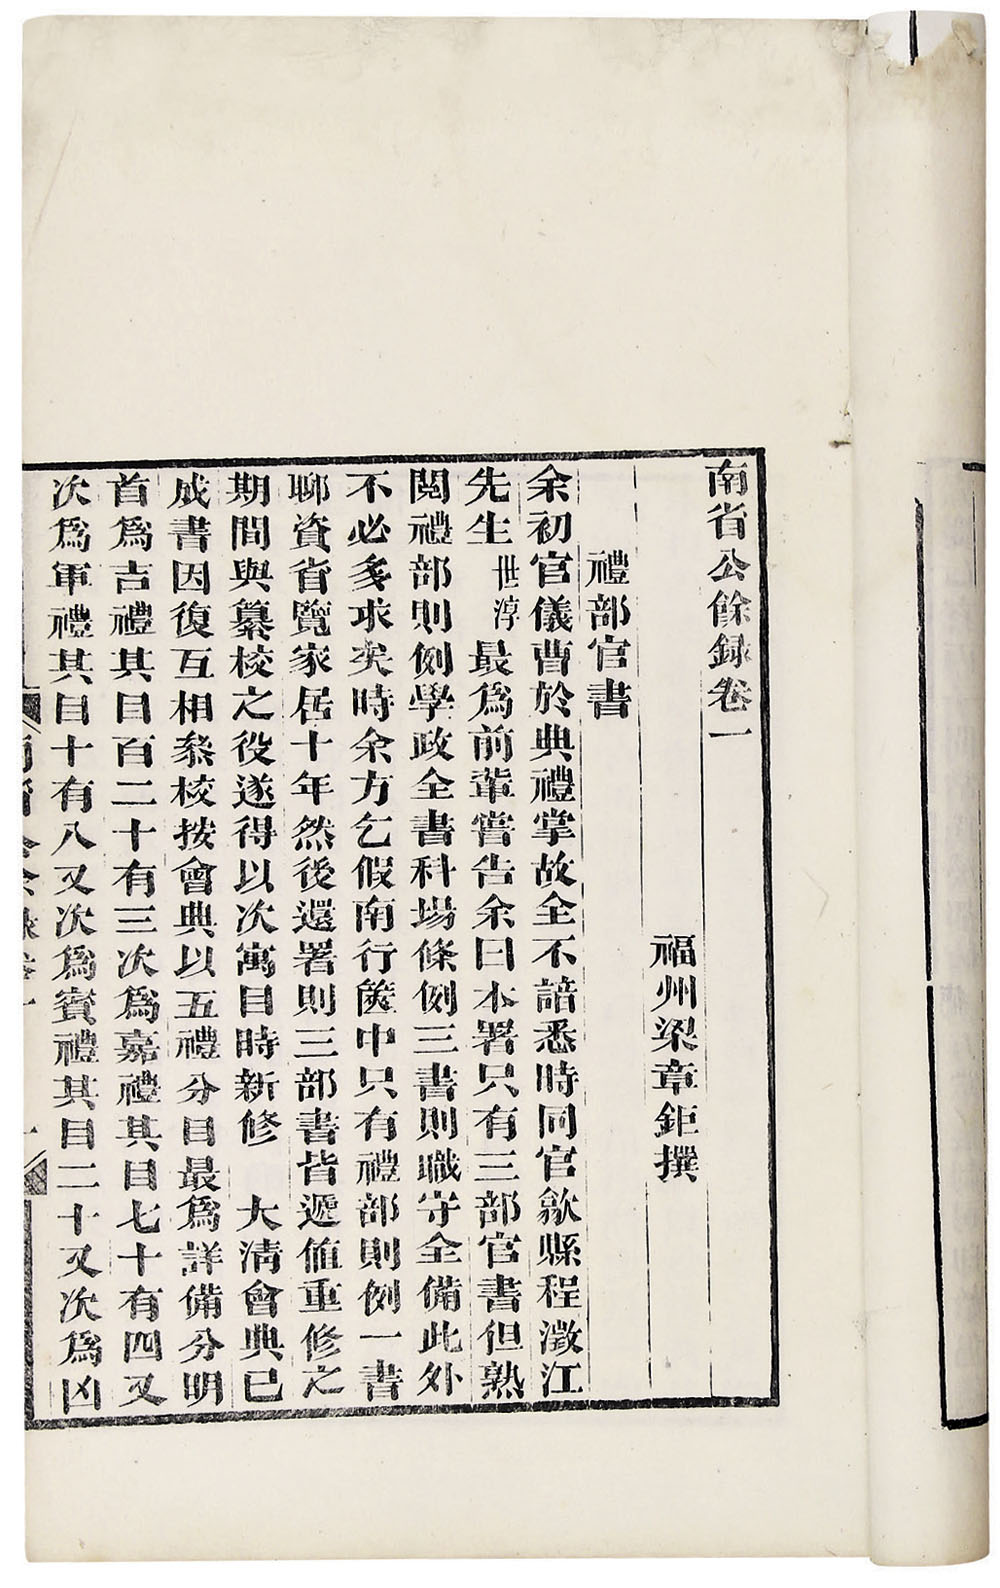 南省公餘録卷一
福州梁章鉅撰
禮部官書
余初官儀曹於典禮掌故全不諳悉時同官歙縣程澂江
先生世淳最爲前輩嘗告余曰本署只有三部官書但熟
閱禮部則例學政全書科場條例三書則職守全備此外
不必多求矣時余方乞假南行篋中只有禮部則例一書
聊資省覽家居十年然後還署則三部書皆遞值重修之
期間與纂校之役遂得以次寓目時新修 大清會典已
成書因復互相叅校按會典以五禮分目最爲詳備分明
首爲吉禮其目百二十有三次爲嘉禮其目七十有四又
次爲軍禮其目十有八又次爲賓禮其目二十又次爲凶